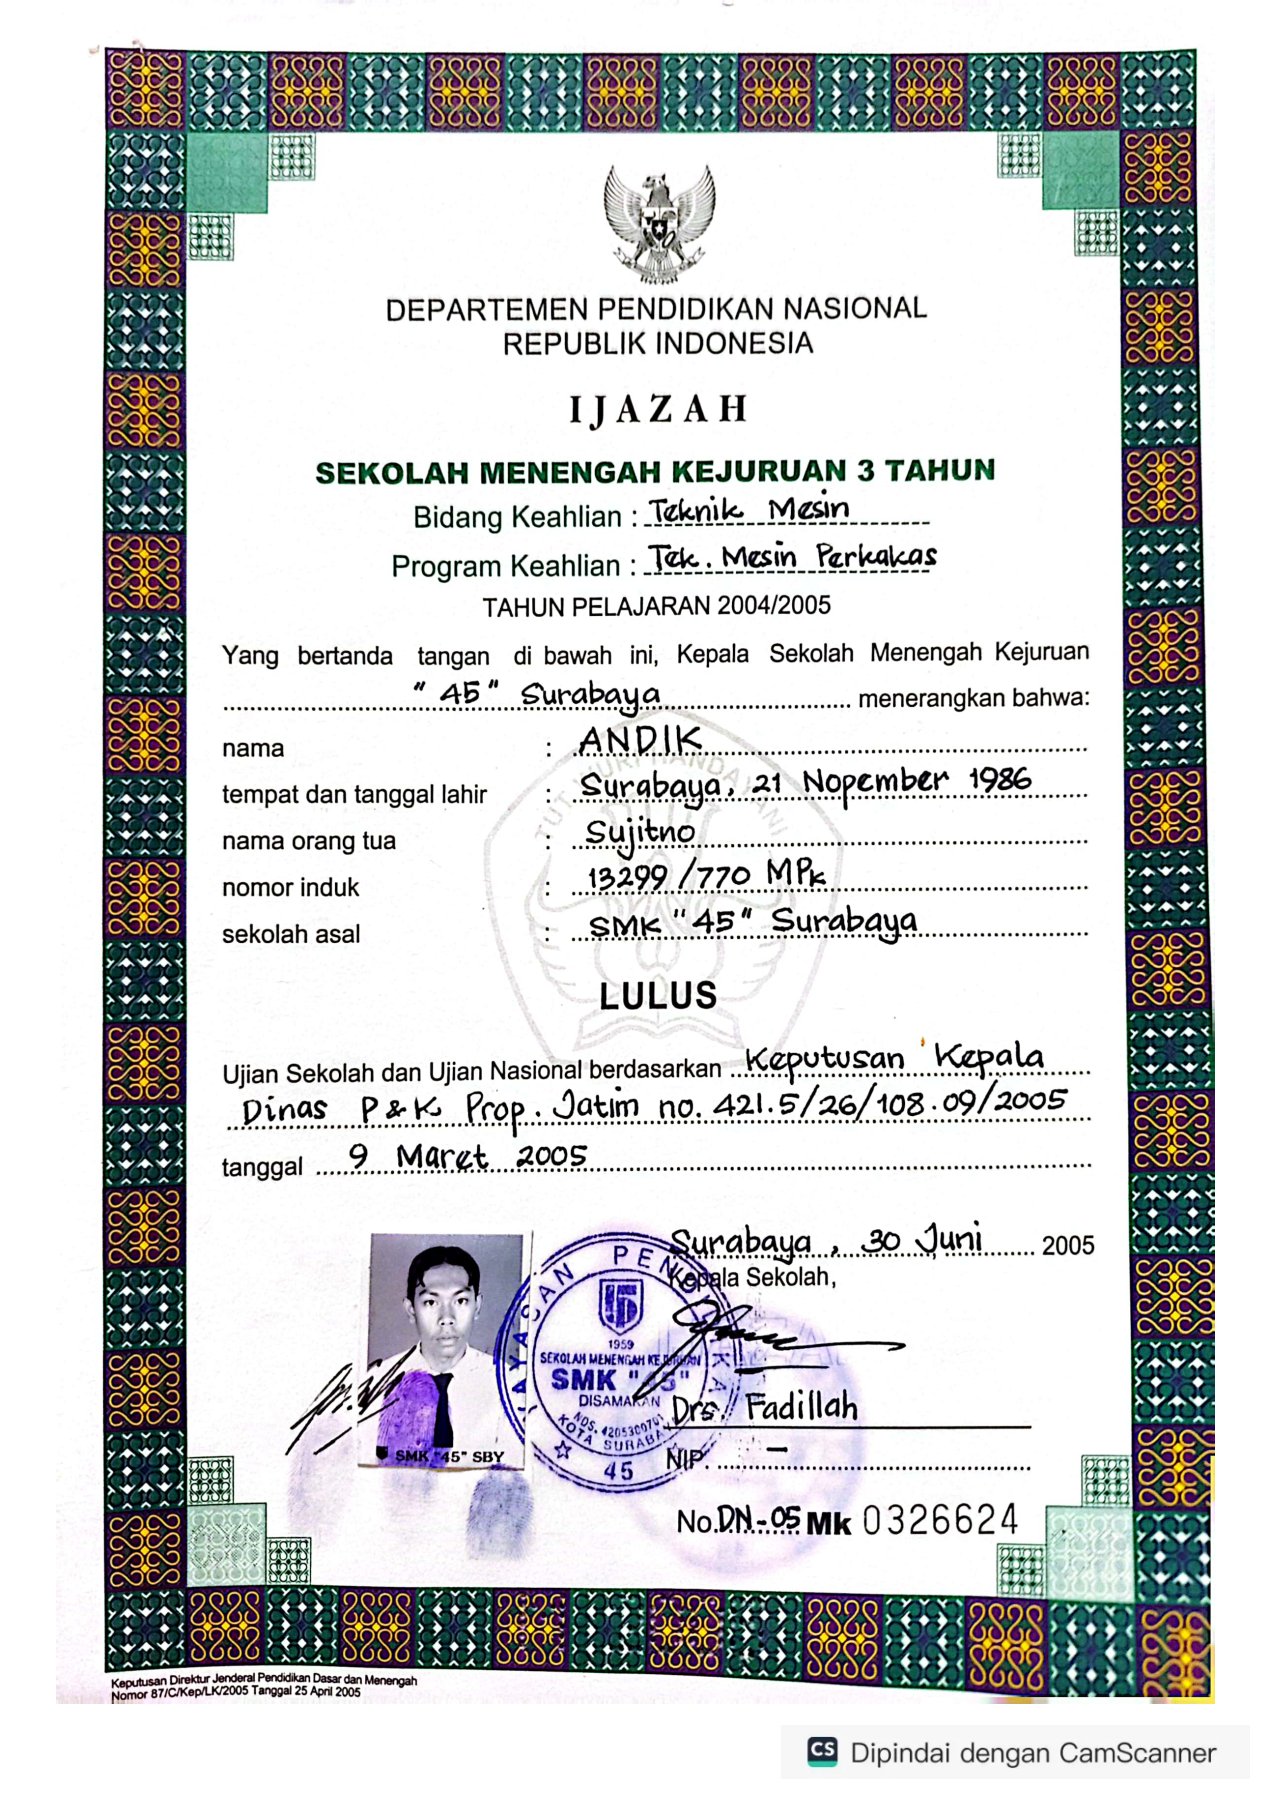 DEPARTEMEN PENDIDIKAN NASIONAL
REPUBLIK INDONESIA
IJAZAH
SEKOLAH MENENGAH KEJURUAN 3 TAHUN
Bidang Keahlian : Teknik Mesin
Program Keahlian : Tek. Mesin Perkakas
TAHUN PELAJARAN 2004/2005
Yang bertanda tangan di bawah ini, Kepala Sekolah Menengah Kejuruan
"45" Surabaya menerangkan bahwa:
nama : ANDIK
tempat dan tanggal lahir : Surabaya, 21 Nopember 1986
nama orang tua : Sujitno
nomor induk : 13299/770 MPk
sekolah asal : SMK "45" Surabaya
TUT WURI HANDAYANI
LULUS
Ujian Sekolah dan Ujian Nasional berdasarkan Keputusan Kepala
Dinas P & K Prop. Jatim no. 421.5/26/108.09/2005
tanggal 9 Maret 2005
Surabaya, 30 Juni 2005
Kepala Sekolah,
YAYASAN PENDIDIKAN
1959
SEKOLAH MENENGAH KEJURUAN
SMK "45"
DISAMAKAN
NDS. 4205300701
KOTA SURABAYA
45
SMK "45" SBY
Drs. Fadillah
NIP. –
No.DN-05 Mk 0326624
Keputusan Direktur Jenderal Pendidikan Dasar dan Menengah
Nomor 87/C/Kep/LK/2005 Tanggal 25 April 2005
CS Dipindai dengan CamScanner